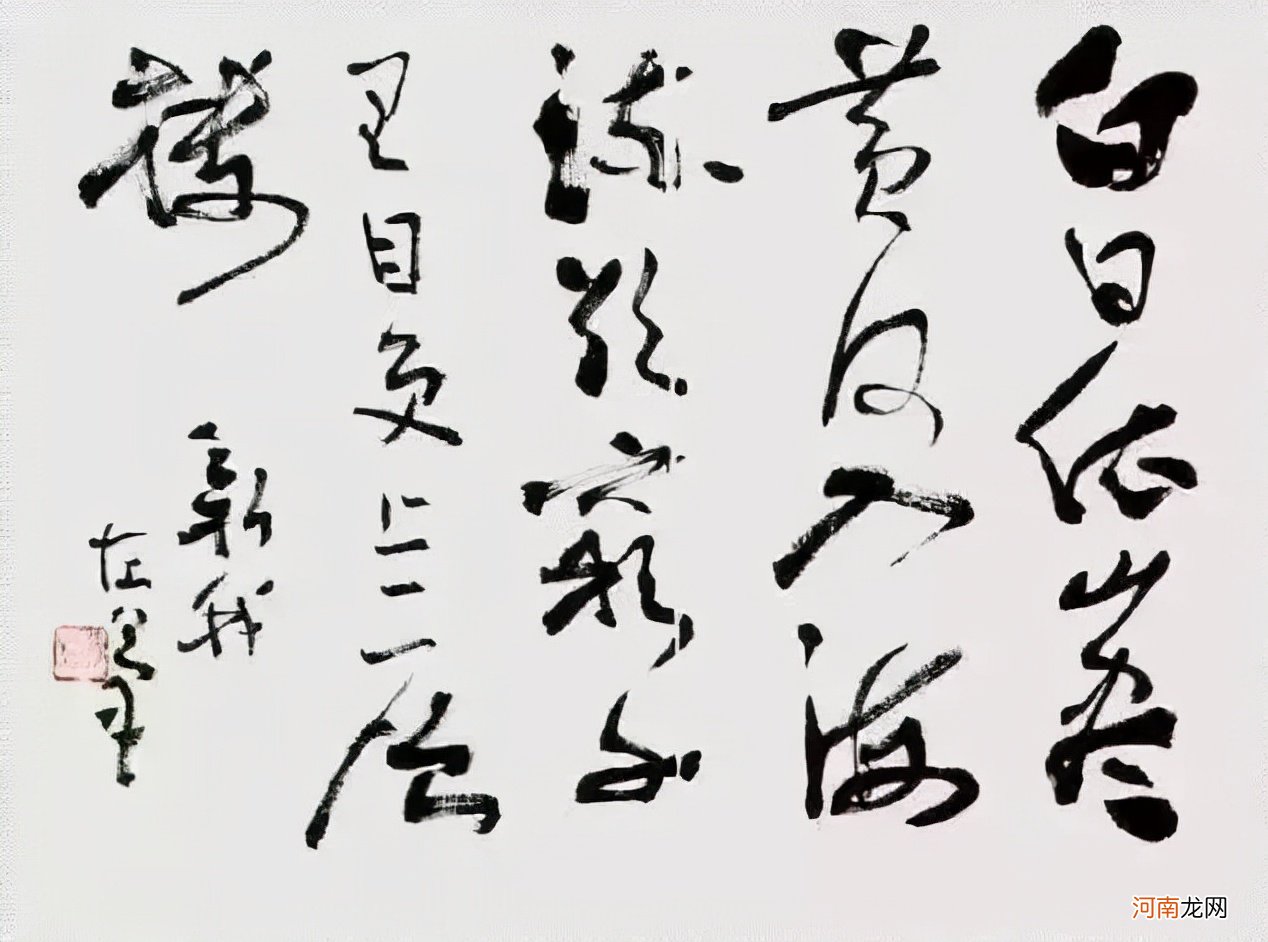 白日依山尽
黄河入海
流欲窮千
里目更上一层
楼
新我
左笔
河南龙网